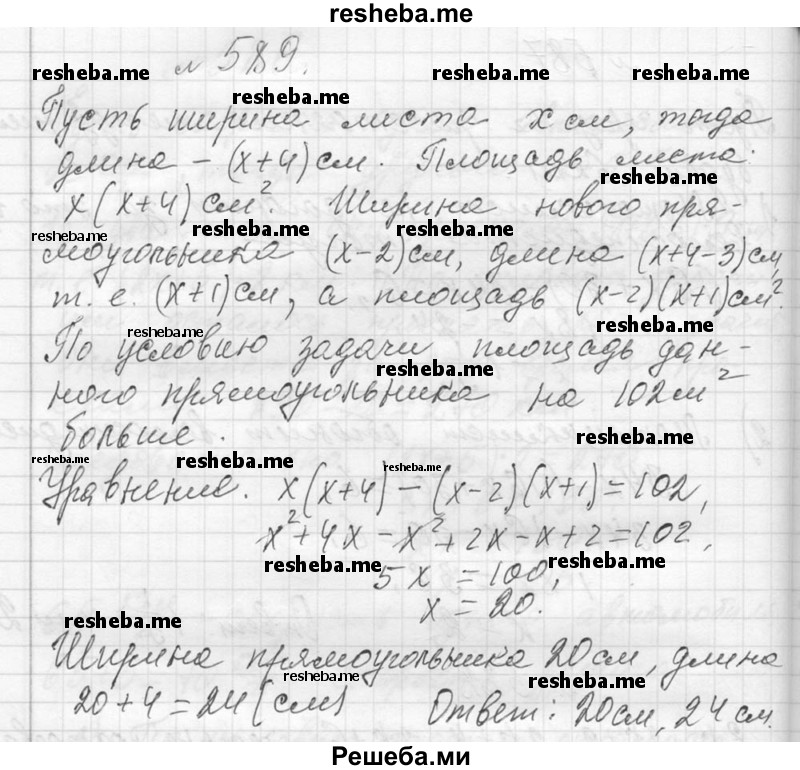 resheba.me
№ 589.
resheba.me resheba.me resheba.me
resheba.me
Пусть ширина листа x см, тогда
длина – (x+4) см. Площадь листа:
resheba.me
x(x+4) см². Ширина нового пря-
resheba.me resheba.me
моугольника (x-2)см, длина (x+4-3)см,
т. е. (x+1)см, а площадь (x-2)(x+1)см².
resheba.me resheba.me
По условию задачи площадь дан-
resheba.me
ного прямоугольника на 102м²
больше.
resheba.me
resheba.me resheba.me resheba.me
Уравнение. x(x+4) – (x-2)(x+1)=102,
x²+4x-x²+2x-x+2=102,
resheba.me resheba.me
5x = 100,
x = 20.
resheba.me
Ширина прямоугольника 20см, длина
resheba.me
20+4=24(см) Ответ: 20см, 24 см.
Решеба.ми